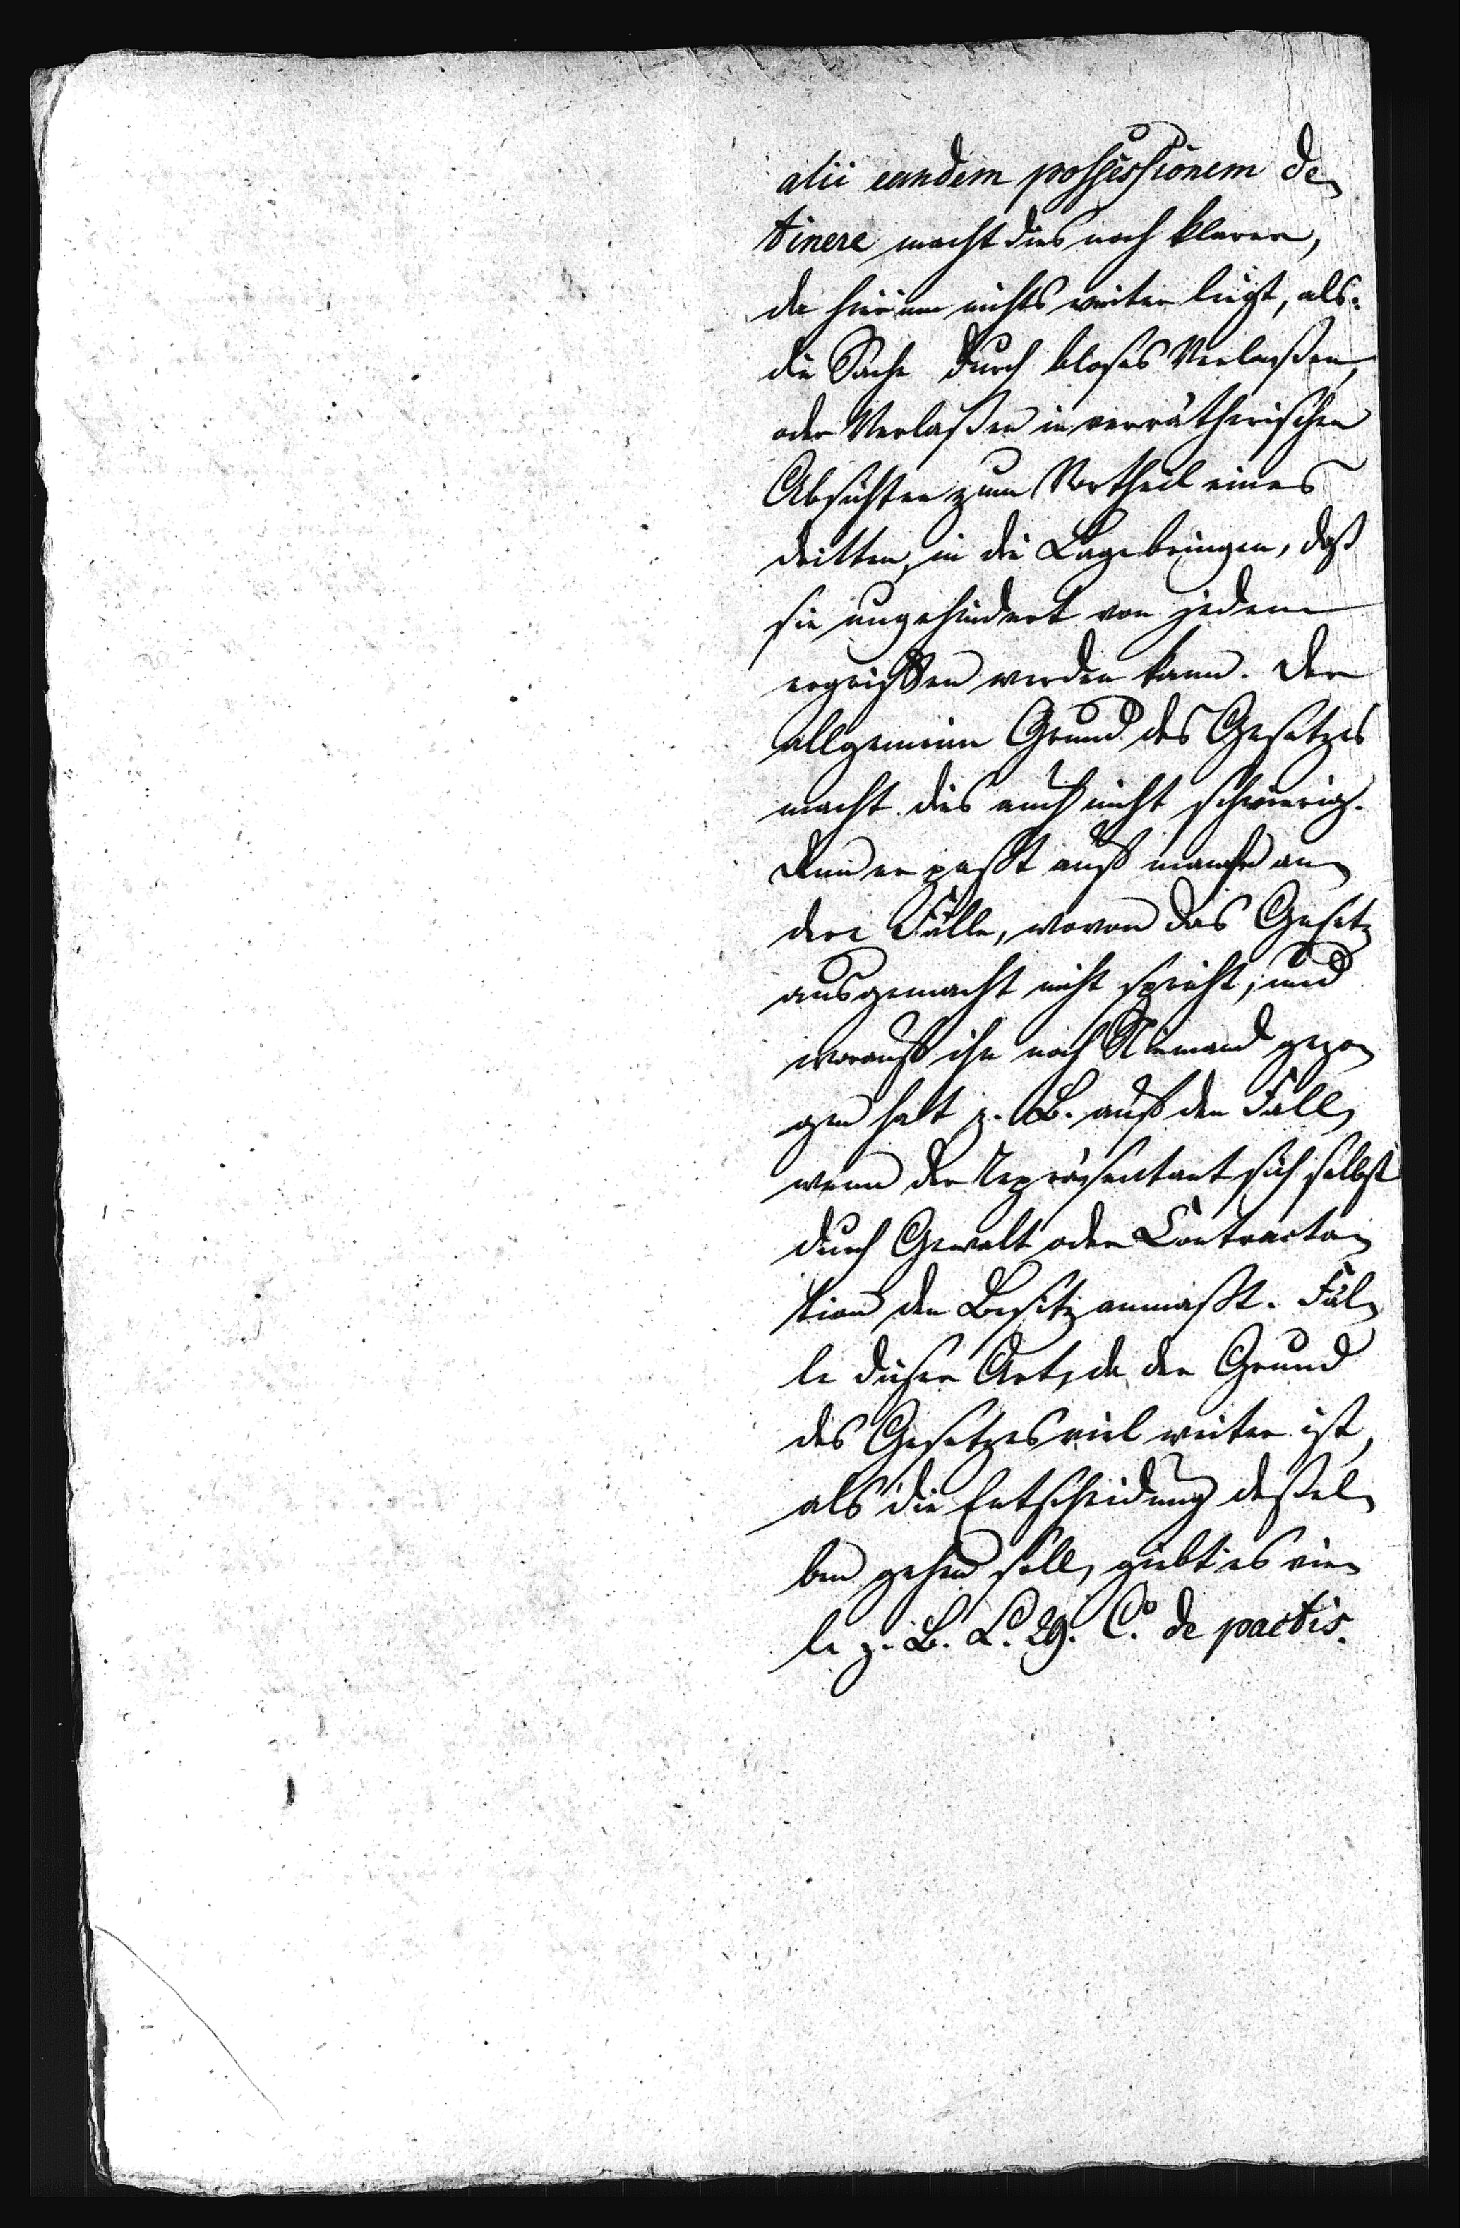 alii eandem possessionem de-
tinere macht dies noch klarer,
da hierinn nichts weiter liegt, als:
die Sache durch bloses Verlaßen,
oder Verlaßen in verrätherischen
Absichten zum Vortheil eines
dritten, in die Lage bringen, daß
sie ungehindert von jedem
ergriffen werden kann. Der
allgemeine Grund des Gesetzes
macht dies auch nicht schwierig.
Denn er paßt auf manche an-
dere Fälle, wovon das Gesetz
ausgemacht nicht spricht, und
worauf ihn noch Niemand gezo-
gen hat z. B. auf den Fall,
wenn der Repräsentant sich selbst
durch Gewalt oder Contracta-
tion den Besitz anmaßt. Fäl-
le dieser Art, da der Grund
des Gesetzes viel weiter ist,
als die Entscheidung deßel-
ben gehen soll, giebt es vie-
le z. B. L. 29. C.º de pactis.